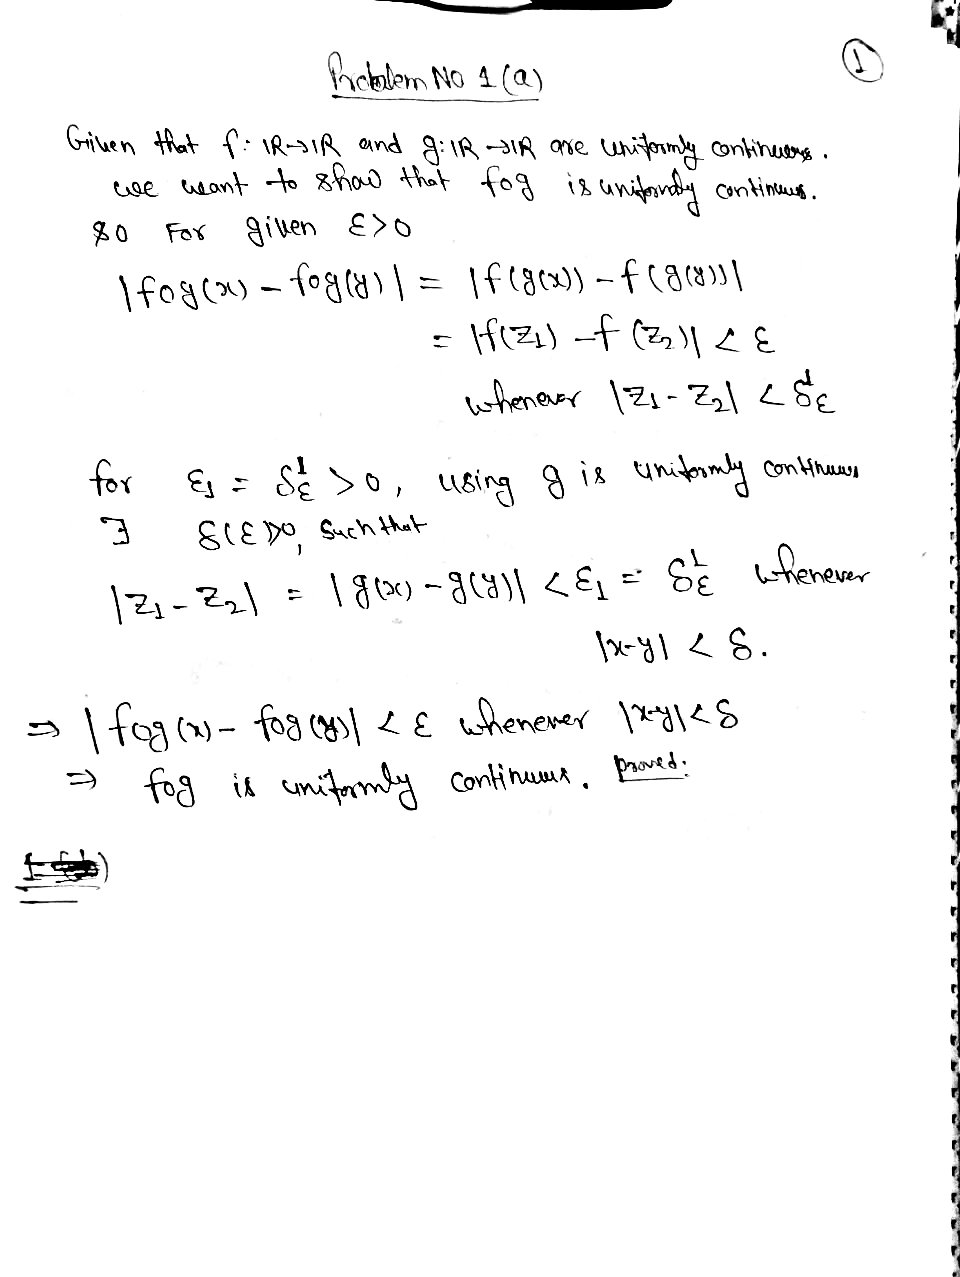 1
Problem No 1(a)
Given that f: IR→IR and g: IR→IR are uniformly continuous.
we want to show that fog is uniformly continuous.
So For given ε>0
|fog(x) - fog(y)| = |f(g(x)) - f(g(y))|
= |f(z₁) - f(z₂)| < ε
whenever |z₁ - z₂| < δ¹_ε
for ε₁ = δ¹_ε > 0, using g is uniformly continuous
∃ δ(ε)>0, such that
|z₁ - z₂| = |g(x) - g(y)| < ε₁ = δ¹_ε whenever
|x-y| < δ.
⇒ |fog(x) - fog(y)| < ε whenever |x-y| < δ
⇒ fog is uniformly continuous. proved.